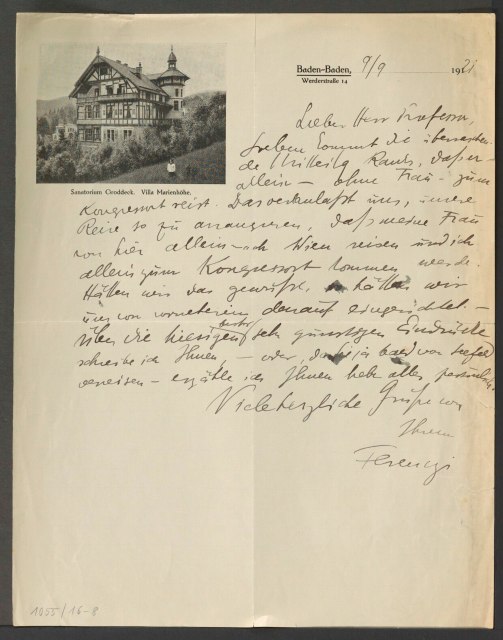 Baden-Baden, 9/9 1921
Werderstraße 14
Sanatorium Groddeck. Villa Marienhöhe.
Lieber Herr Professor,
soeben kommt die überraschen-
de Mitteilung Ranks, daß er
allein – ohne Frau – zum
Kongressort reist. Das veranlaßt uns, unsere
Reise so zu arrangieren, daß meine Frau
von hier allein nach Wien reisen und ich
allein zum Kongressort kommen werde.
Hätten wir das gewußt, hätten wir
uns von vorneherein darauf eingerichtet. –
Über die hiesigen bisher sehr günstigen Eindrücke
schreibe ich Ihnen, – oder, da Sie ja bald von Seefeld
verreisen – erzähle ich Ihnen alles persönlich.
Viele herzliche Grüße von
Ihrem
Ferenczi
1055/16-8